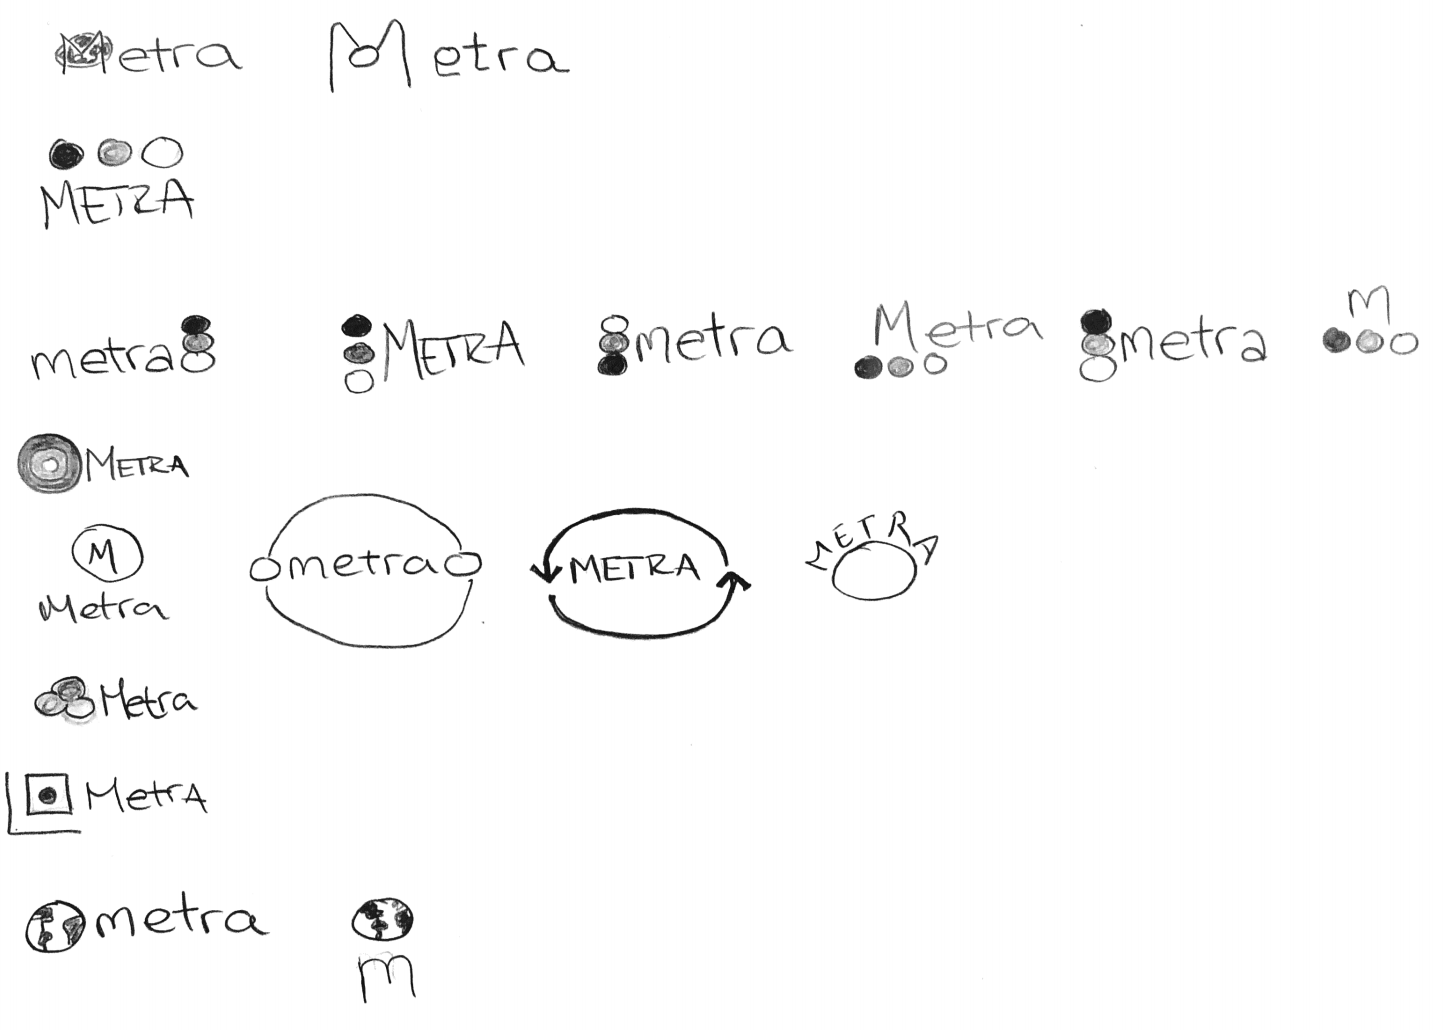 Metra
Metra
METRA
metra
METRA
metra
Metra
metra
M
METRA
M
Metra
metra
METRA
METRA
Metra
MetrA
metra
m